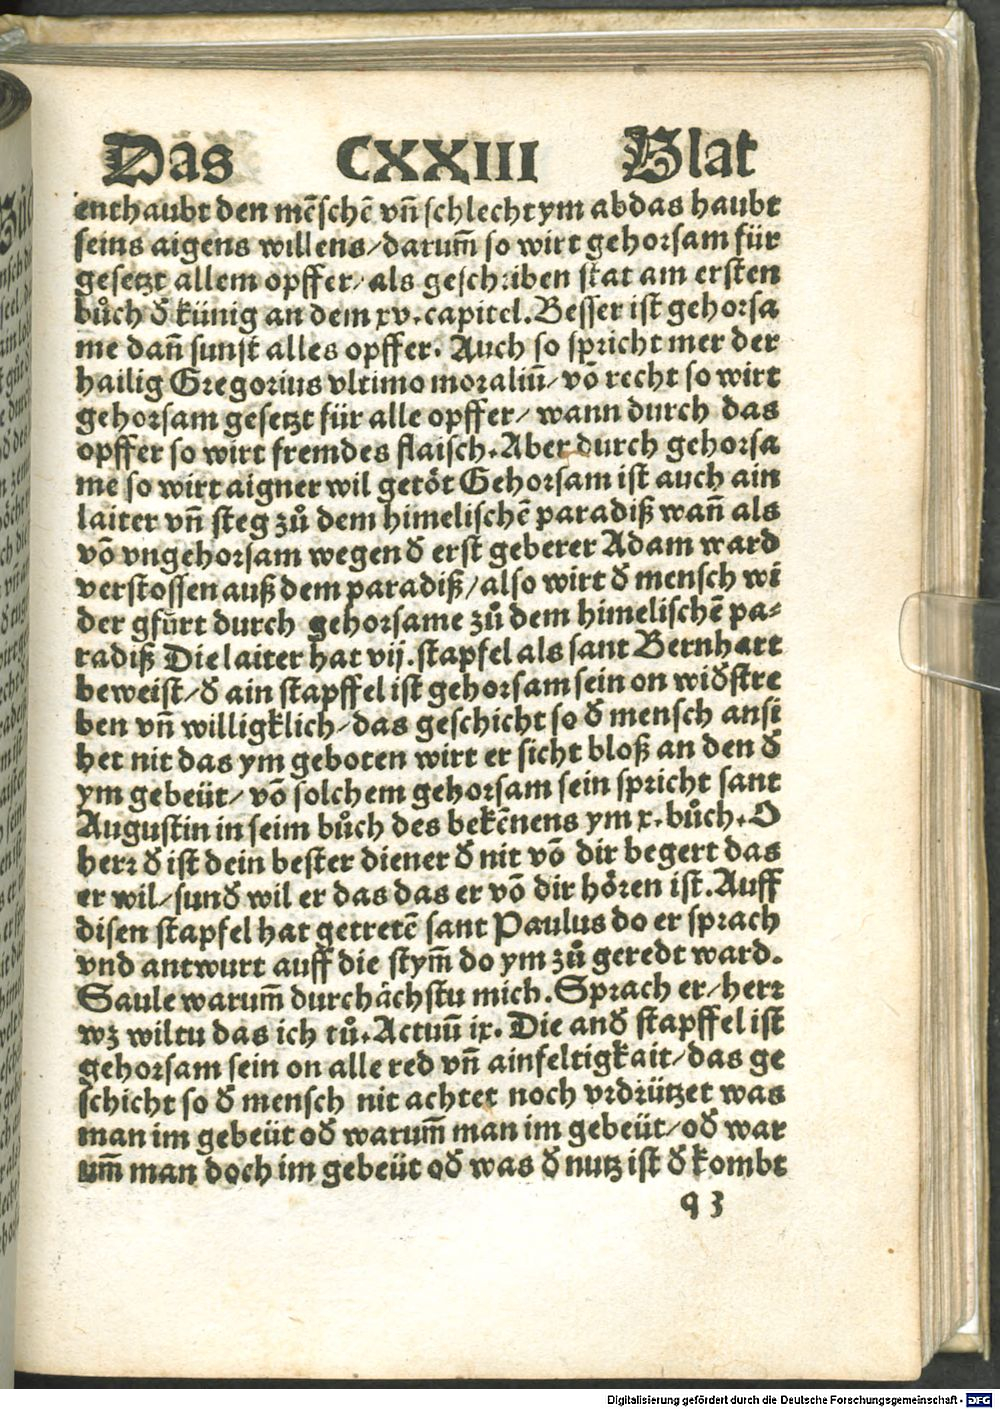 Das CXXIII Blat
enthaubt den mēschē vn̄ schlecht ym ab das haubt
seins aigens willens/darum̄ so wirt gehorsam für
gesetzt allem opffer/als geschriben stat am ersten
bůch d̕ künig an dem xv.capitel.Besser ist gehorsa
me dan̄ sunst alles opffer. Auch so spricht mer der
hailig Gregorius vltimo moraliū/vō recht so wirt
gehorsam gesetzt für alle opffer/wann durch das
opffer so wirt fremdes flaisch.Aber durch gehorsa
me so wirt aigner wil getöt Gehorsam ist auch ain
laiter vn̄ steg zů dem himelischē paradiß wan̄ als
vō vngehorsam wegen d̕ erst geberer Adam ward
verstossen auß dem paradiß/also wirt d̕ mensch wi
der gfůrt durch gehorsame zů dem himelischē pa-
radiß Die laiter hat vij.stapfel als sant Bernhart
beweist/d̕ ain stapffel ist gehorsam sein on wid̕stre
ben vn̄ willigklich/das geschicht so d̕ mensch ansi
het nit das ym geboten wirt er sicht bloß an den d̕
ym gebeüt/vō solchem gehorsam sein spricht sant
Augustin in seim bůch des bekēnens ym x.bůch.O
herr d̕ ist dein bester diener d̕ nit vō dir begert das
er wil/sund̕ wil er das das er vō dir hören ist.Auff
disen stapfel hat getretē sant Paulus do er sprach
vnd antwurt auff die stym̄ do ym zů geredt ward.
Saule warum̄ durchächstu mich.Sprach er/herr
wz wiltu das ich tů.Actuū ix. Die and̕ stapffel ist
gehorsam sein on alle red vn̄ ainfeltigkait/das ge
schicht so d̕ mensch nit achtet noch vrdrützet was
man im gebeüt od̕ warum̄ man im gebeüt/od̕ war
um̄ man doch im gebeüt od̕ was d̕ nutz ist d̕ kombt
q 3
Digitalisierung gefördert durch die Deutsche Forschungsgemeinschaft - DFG